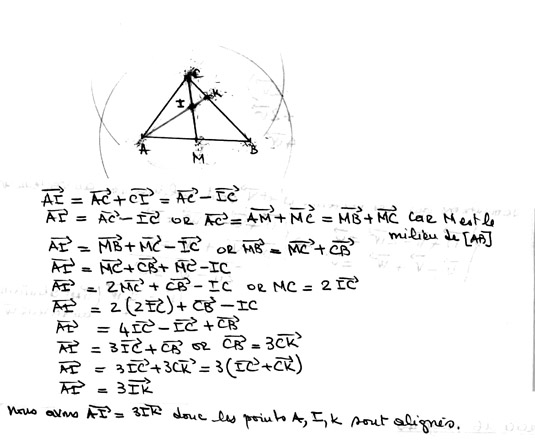 C
I K
A M B
$\overrightarrow{AI} = \overrightarrow{AC} + \overrightarrow{CI} = \overrightarrow{AC} - \overrightarrow{IC}$
$\overrightarrow{AI} = \overrightarrow{AC} - \overrightarrow{IC}$ OR $\overrightarrow{AC} = \overrightarrow{AM} + \overrightarrow{MC} = \overrightarrow{MB} + \overrightarrow{MC}$ car M est le
milieu de [AB]
$\overrightarrow{AI} = \overrightarrow{MB} + \overrightarrow{MC} - \overrightarrow{IC}$ OR $\overrightarrow{MB} = \overrightarrow{MC} + \overrightarrow{CB}$
$\overrightarrow{AI} = \overrightarrow{MC} + \overrightarrow{CB} + \overrightarrow{MC} - IC$
$\overrightarrow{AI} = 2\overrightarrow{MC} + \overrightarrow{CB} - IC$ OR $MC = 2\overrightarrow{IC}$
$\overrightarrow{AI} = 2(2\overrightarrow{IC}) + \overrightarrow{CB} - IC$
$\overrightarrow{AI} = 4\overrightarrow{IC} - \overrightarrow{IC} + \overrightarrow{CB}$
$\overrightarrow{AI} = 3\overrightarrow{IC} + \overrightarrow{CB}$ OR $\overrightarrow{CB} = 3\overrightarrow{CK}$
$\overrightarrow{AI} = 3\overrightarrow{IC} + 3\overrightarrow{CK} = 3(\overrightarrow{IC} + \overrightarrow{CK})$
$\overrightarrow{AI} = 3\overrightarrow{IK}$
nous avons $\overrightarrow{AI} = 3\overrightarrow{IK}$ donc les points A, I, K sont alignés.